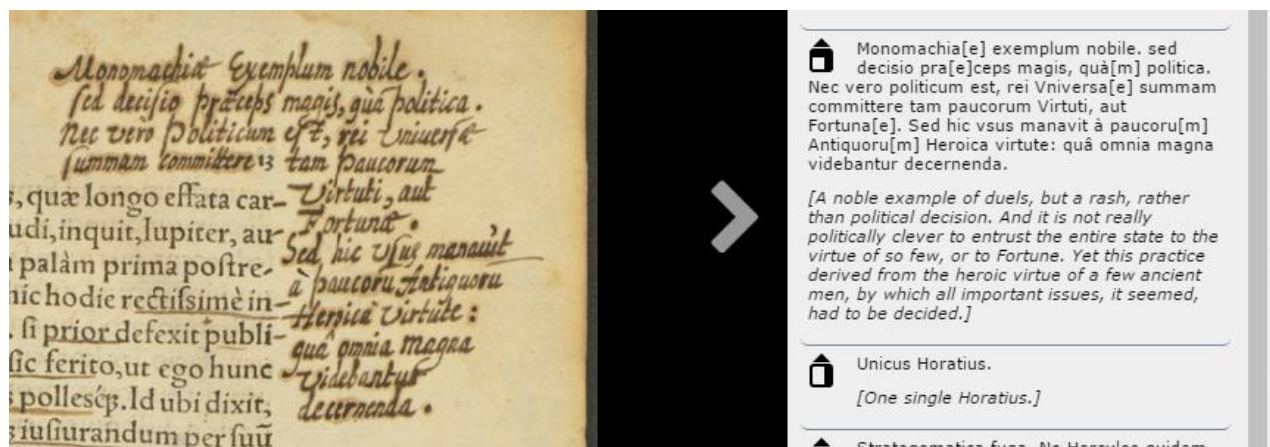 Monomachiæ Exemplum nobile.
sed decisio præceps magis, quã politica.
Nec vero Politicum est, rei Vniuersæ
summam committere 13 tam paucorum
Virtuti, aut
Fortunæ.
Sed hic vsus manauit
à paucorũ Antiquorũ
Heroica virtute:
quâ omnia magna
videbantur
decernenda.
, quæ longo effata car-
udi, inquit, Iupiter, au-
palàm prima poſtre-
hodie rectiſsimè in-
. ſi prior defexit publi-
ſic ferito, ut ego hunc
polleśq;. Id ubi dixit,
iuſiurandum per ſuũ
Monomachia[e] exemplum nobile. sed
decisio pra[e]ceps magis, quà[m] politica.
Nec vero politicum est, rei Vniversa[e] summam
committere tam paucorum Virtuti, aut
Fortuna[e]. Sed hic vsus manavit à paucoru[m]
Antiquoru[m] Heroica virtute: quâ omnia magna
videbantur decernenda.
[A noble example of duels, but a rash, rather
than political decision. And it is not really
politically clever to entrust the entire state to the
virtue of so few, or to Fortune. Yet this practice
derived from the heroic virtue of a few ancient
men, by which all important issues, it seemed,
had to be decided.]
Unicus Horatius.
[One single Horatius.]
Strategematica fuga. Ne Hercules quidem